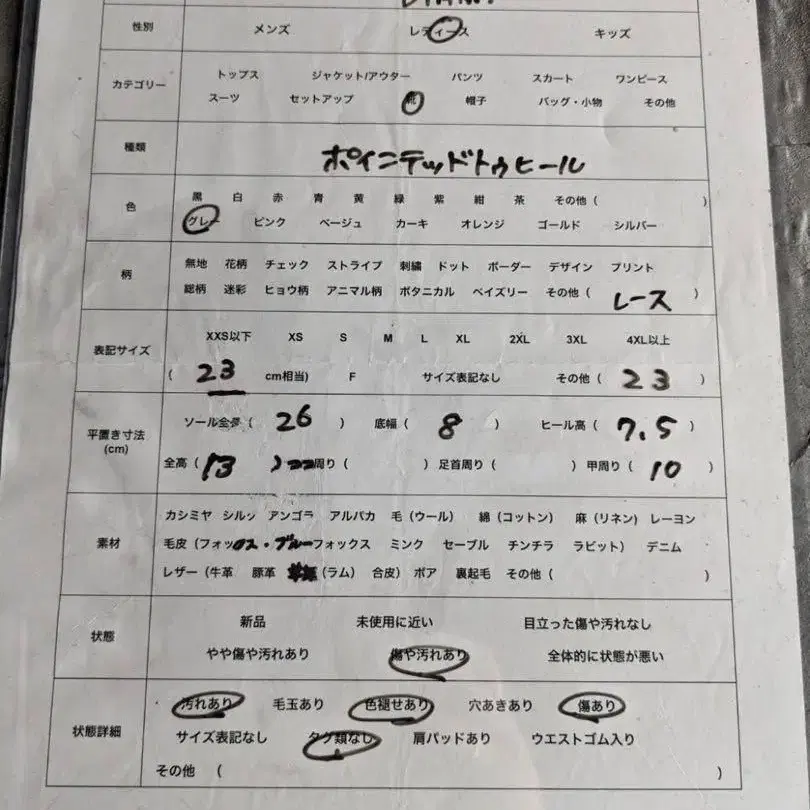 性別 メンズ レディース キッズ
カテゴリー
トップス ジャケット/アウター パンツ スカート ワンピース
スーツ セットアップ 靴 帽子 バッグ・小物 その他
種類 ポインテッドトゥヒール
色
黒 白 赤 青 黄 緑 紫 紺 茶 その他 ( )
グレー ピンク ベージュ カーキ オレンジ ゴールド シルバー
柄
無地 花柄 チェック ストライプ 刺繍 ドット ボーダー デザイン プリント
総柄 迷彩 ヒョウ柄 アニマル柄 ボタニカル ペイズリー その他 ( レース )
表記サイズ
XXS以下 XS S M L XL 2XL 3XL 4XL以上
( 23 cm相当) F サイズ表記なし その他 ( 23 )
平置き寸法
(cm)
ソール全長 ( 26 ) 底幅 ( 8 ) ヒール高 ( 7.5 )
全高 ( 13 ) 周り ( ) 足首周り ( ) 甲周り ( 10 )
素材
カシミヤ シルク アンゴラ アルパカ 毛 (ウール) 綿 (コットン) 麻 (リネン) レーヨン
毛皮 (フォックス・ブルーフォックス ミンク セーブル チンチラ ラビット) デニム
レザー (牛革 豚革 (ラム) 合皮) ボア 裏起毛 その他 ( )
状態
新品 未使用に近い 目立った傷や汚れなし
やや傷や汚れあり 傷や汚れあり 全体的に状態が悪い
状態詳細
汚れあり 毛玉あり 色褪せあり 穴あきあり 傷あり
サイズ表記なし タグ類なし 肩パッドあり ウエストゴム入り
その他 ( )